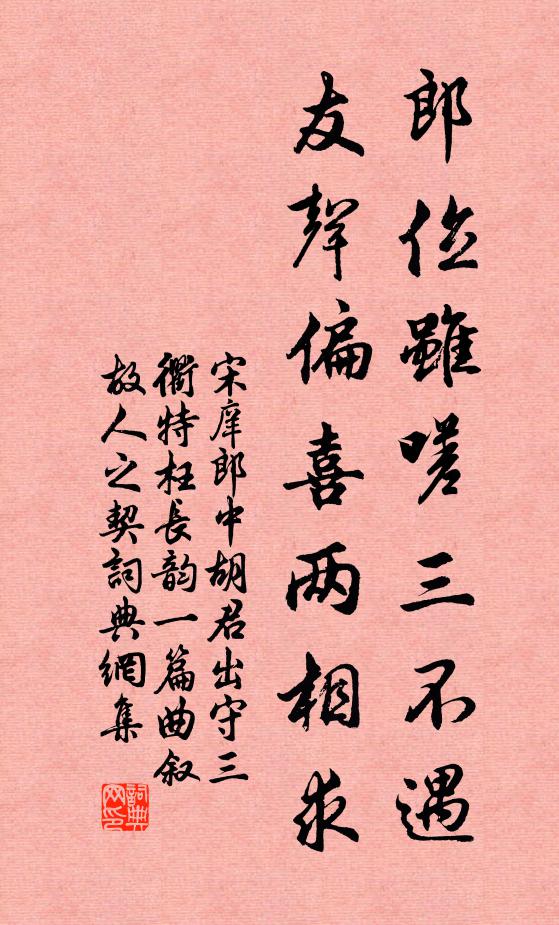 郎位雖嗟三不遇
友聲偏喜两相求
宋庠郎中胡君出守三
衢特枉長韵一篇曲叙
故人之契詞典網集
詞典网印